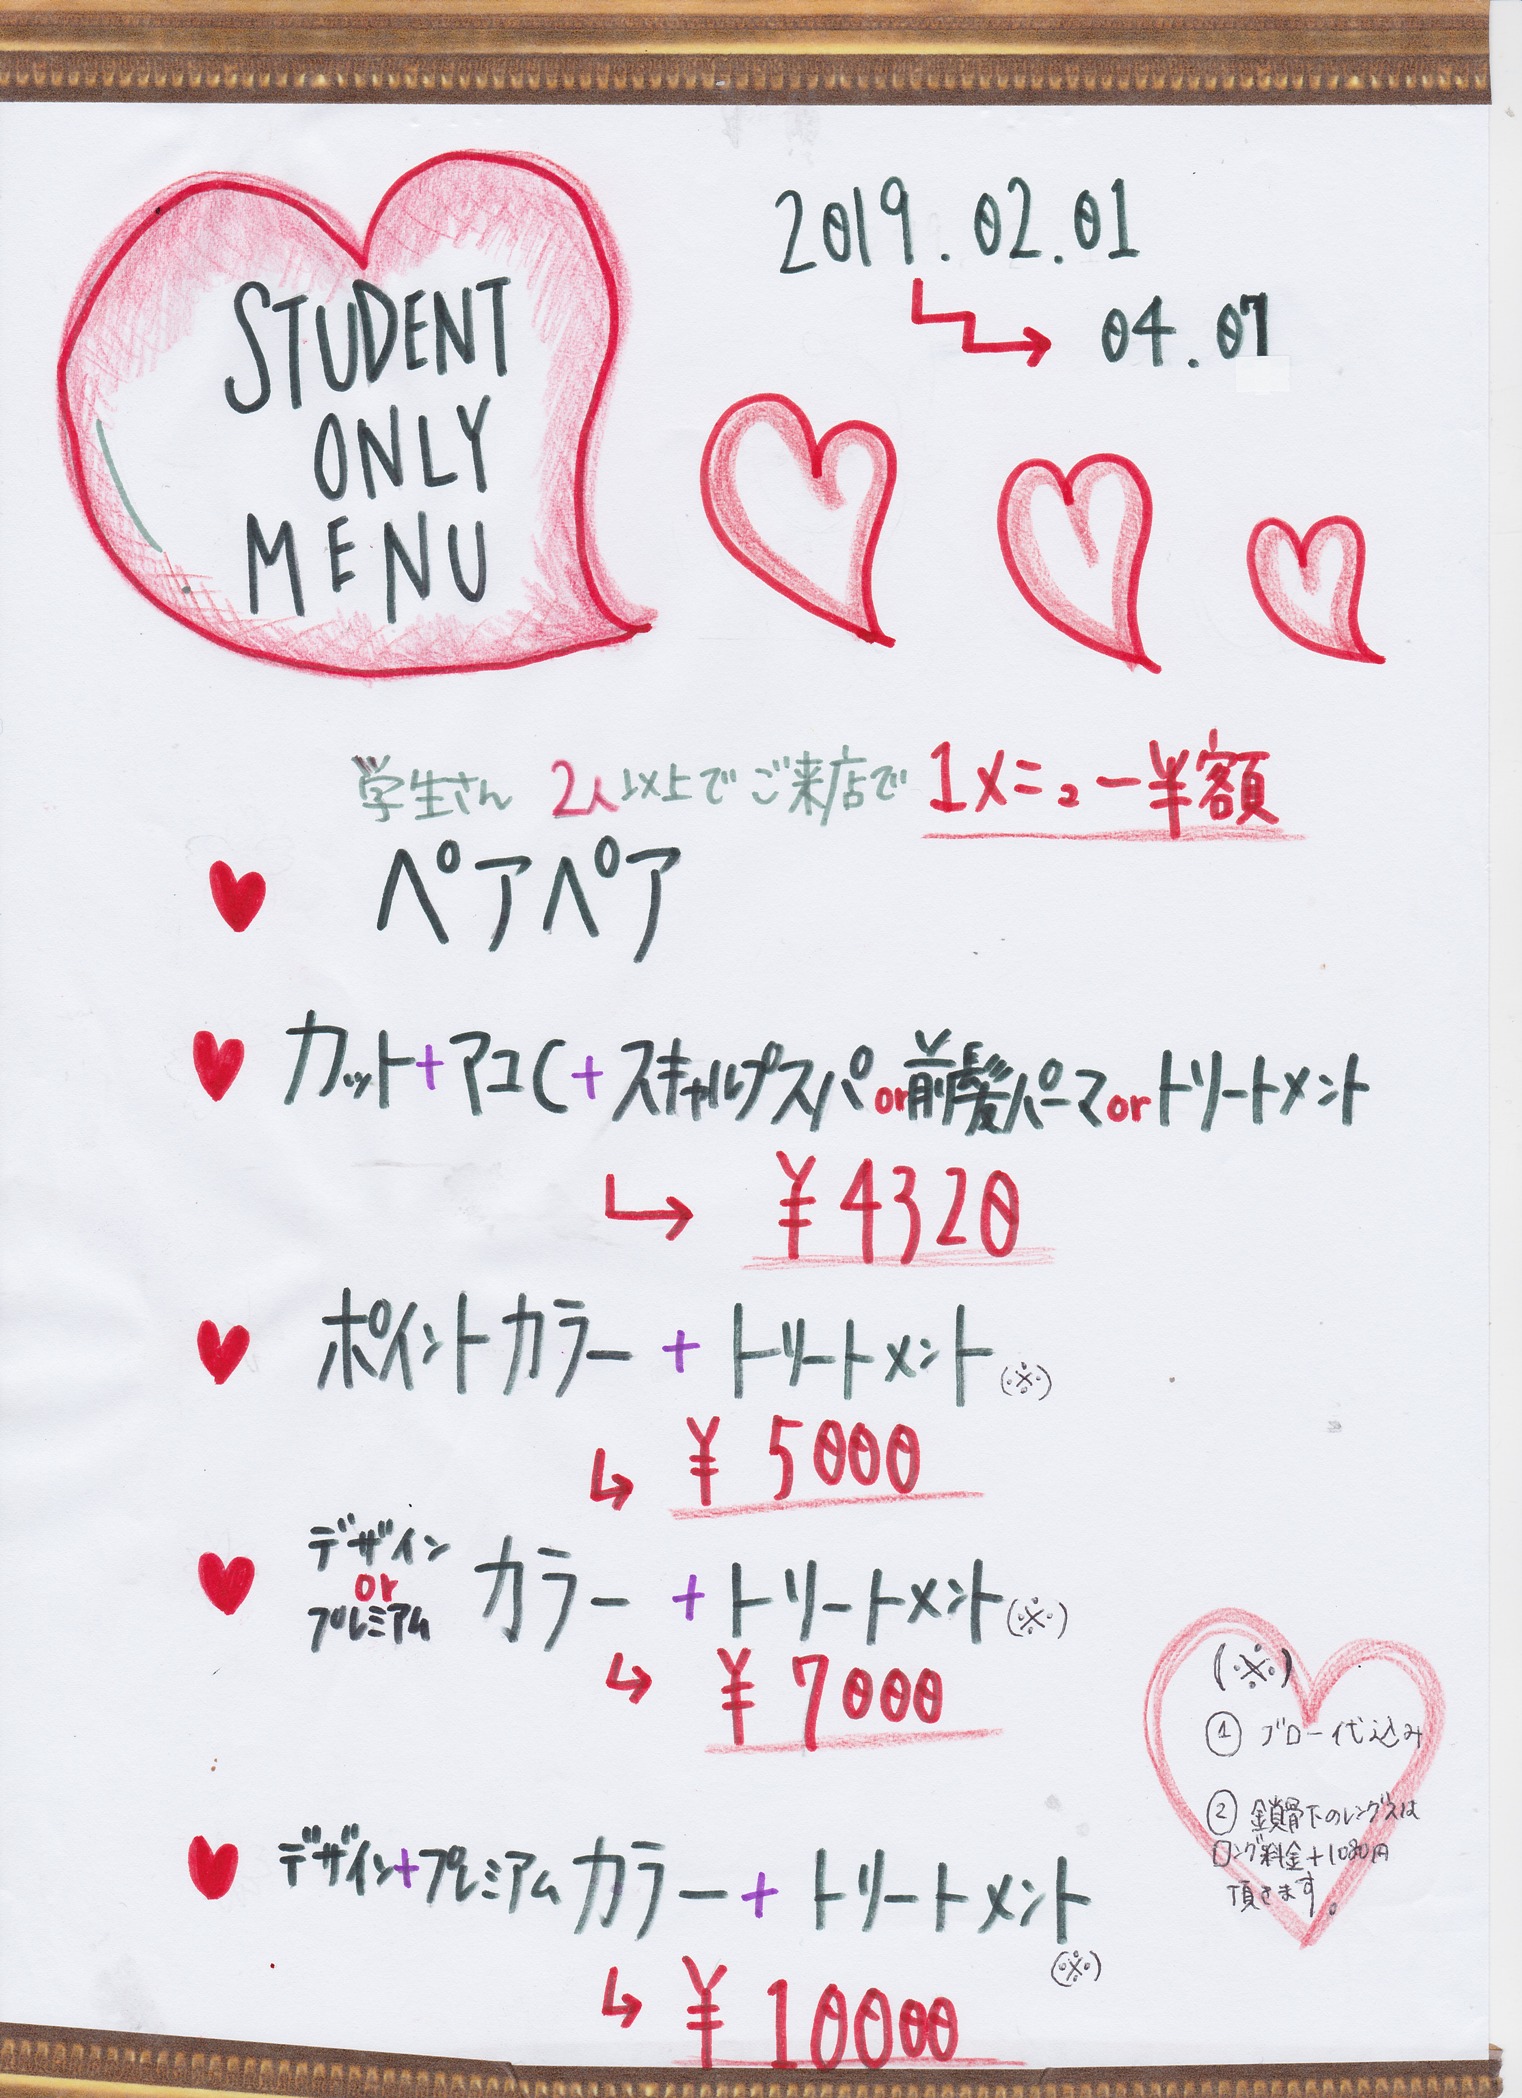 STUDENT
ONLY
MENU
2019.02.01
04.07
学生さん 2人以上でご来店で 1メニュー半額
ペアペア
カット+アユC+スキャルプスパor前髪パーマorトリートメント
¥4320
ポイントカラー + トリートメント(※)
¥5000
デザイン
or
プレミアム
カラー + トリートメント(※)
¥7000
(※)
① ブロー代込み
② 鎖骨下のレングスは
ロング料金+1080円
頂きます。
デザイン+プレミアムカラー+トリートメント
(※)
¥10000